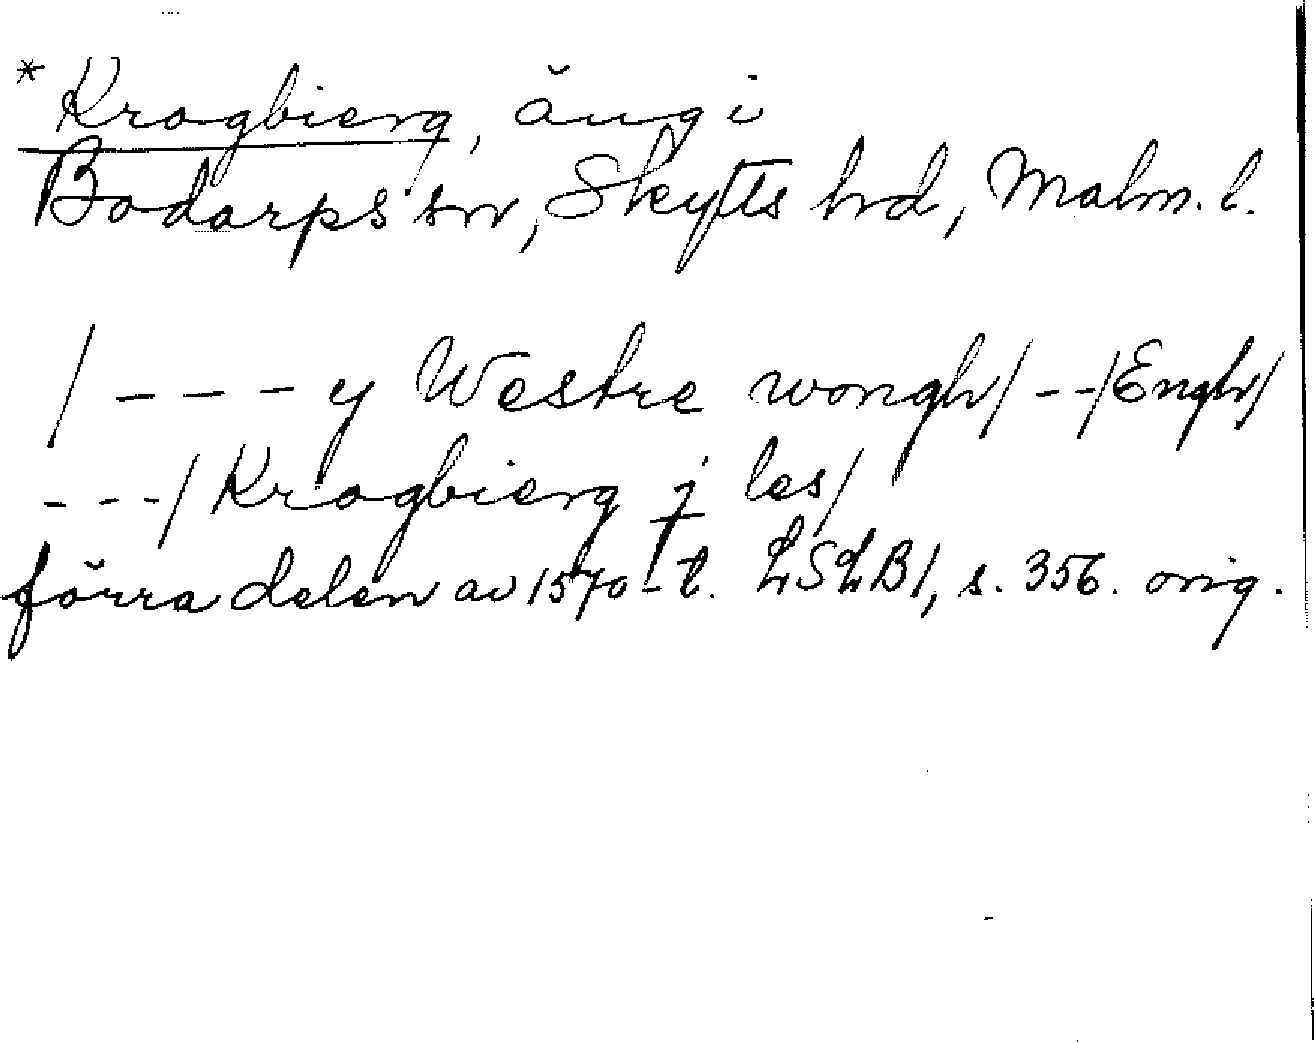 *Kragbierg, äng i
Bodarps sn, Skytts hd, Malm. l.
/ - - - y Westre wongh / - - / Engh /
- - - / Kragbierg j les /
förra delen av 1570-t. LSLB1, s. 356. orig.